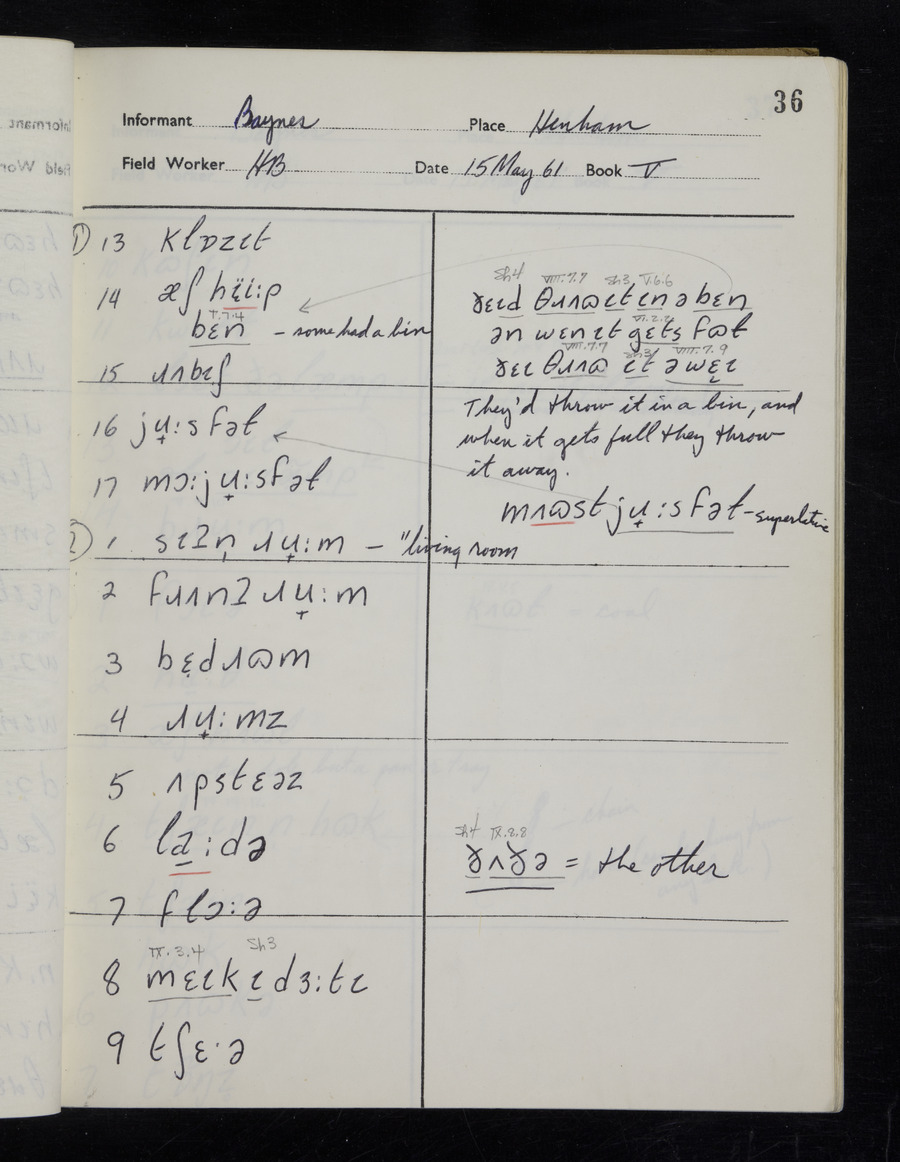 36
Informant Baynes Place Henham
Field Worker HB Date 15 May 61 Book V
① 13 klɒzɩt
14 æʃ hïɩ:p
V.7.4
bɛn – some had a bin
15 ɹʌbɩʃ
16 jʉ̟:sfət
17 mɔ:jʉ̟:sfət
1 sɩtɪŋ ɹʉ̟:m – "living room
2 fɹʌnʔ ɹʉ̟:m
3 bɛ̣dɹɷm
4 ɹʉ̟:mz
5 ʌpstɛəz
6 la̠:də
7 flɔ:ə
IX.3.4 Sh3
8 mɛɩk ɩ dɜ:tɩ
9 tʃɛ·ə
Sh4 VIII.7.7 Sh3 V.6.6
ðɛɩd θɹʌɷ ɩt ɩn ə bɛn
VI.2.2
ən wɛn ɩt gɛts fɷt
VIII.7.7 Sh3 VIII.7.9
ðɛɩ θɹʌɷ ɩt əwɛ̣ɩ
They'd throw it in a bin, and
when it gets full they throw
it away.
mʌɷst jʉ̟:sfət – superlative
Sh4 IX.8.8
ðʌðə = the other